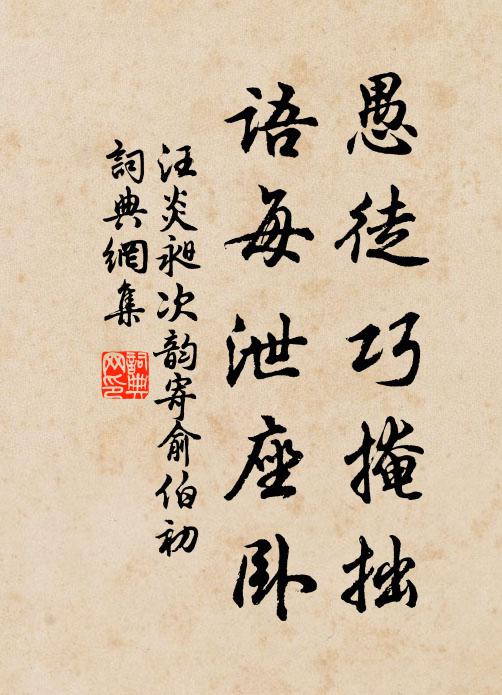 愚徒巧掩拙
語每泄座卧
汪炎昶次韵寄俞伯初
詞典網集
詞典
网印